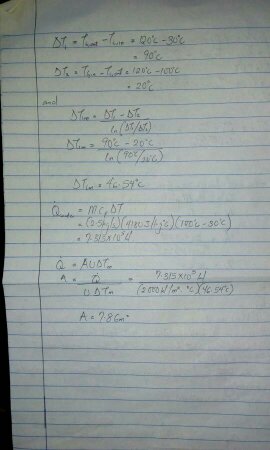 ΔT₁ = Tₕout − Tc,in = 120°C − 30°C
= 90°C
ΔT₂ = Tₕin − Tc,out = 120°C − 100°C
= 20°C
and
ΔTlm = ΔT₁ − ΔT₂ / ln(ΔT₁/ΔT₂)
ΔTlm = 90°C − 20°C / ln(90°C/20°C)
ΔTlm = 46.54°C
Q̇water = ṁCpΔT
= (2.5kg/s)(4180J/kg°C)(100°C − 30°C)
= 7.315×10⁵ W
Q̇ = AUΔTm
A = Q̇ / UΔTm = 7.315×10⁵ W / (2000W/m² °C)(46.54°C)
A = 7.86m²